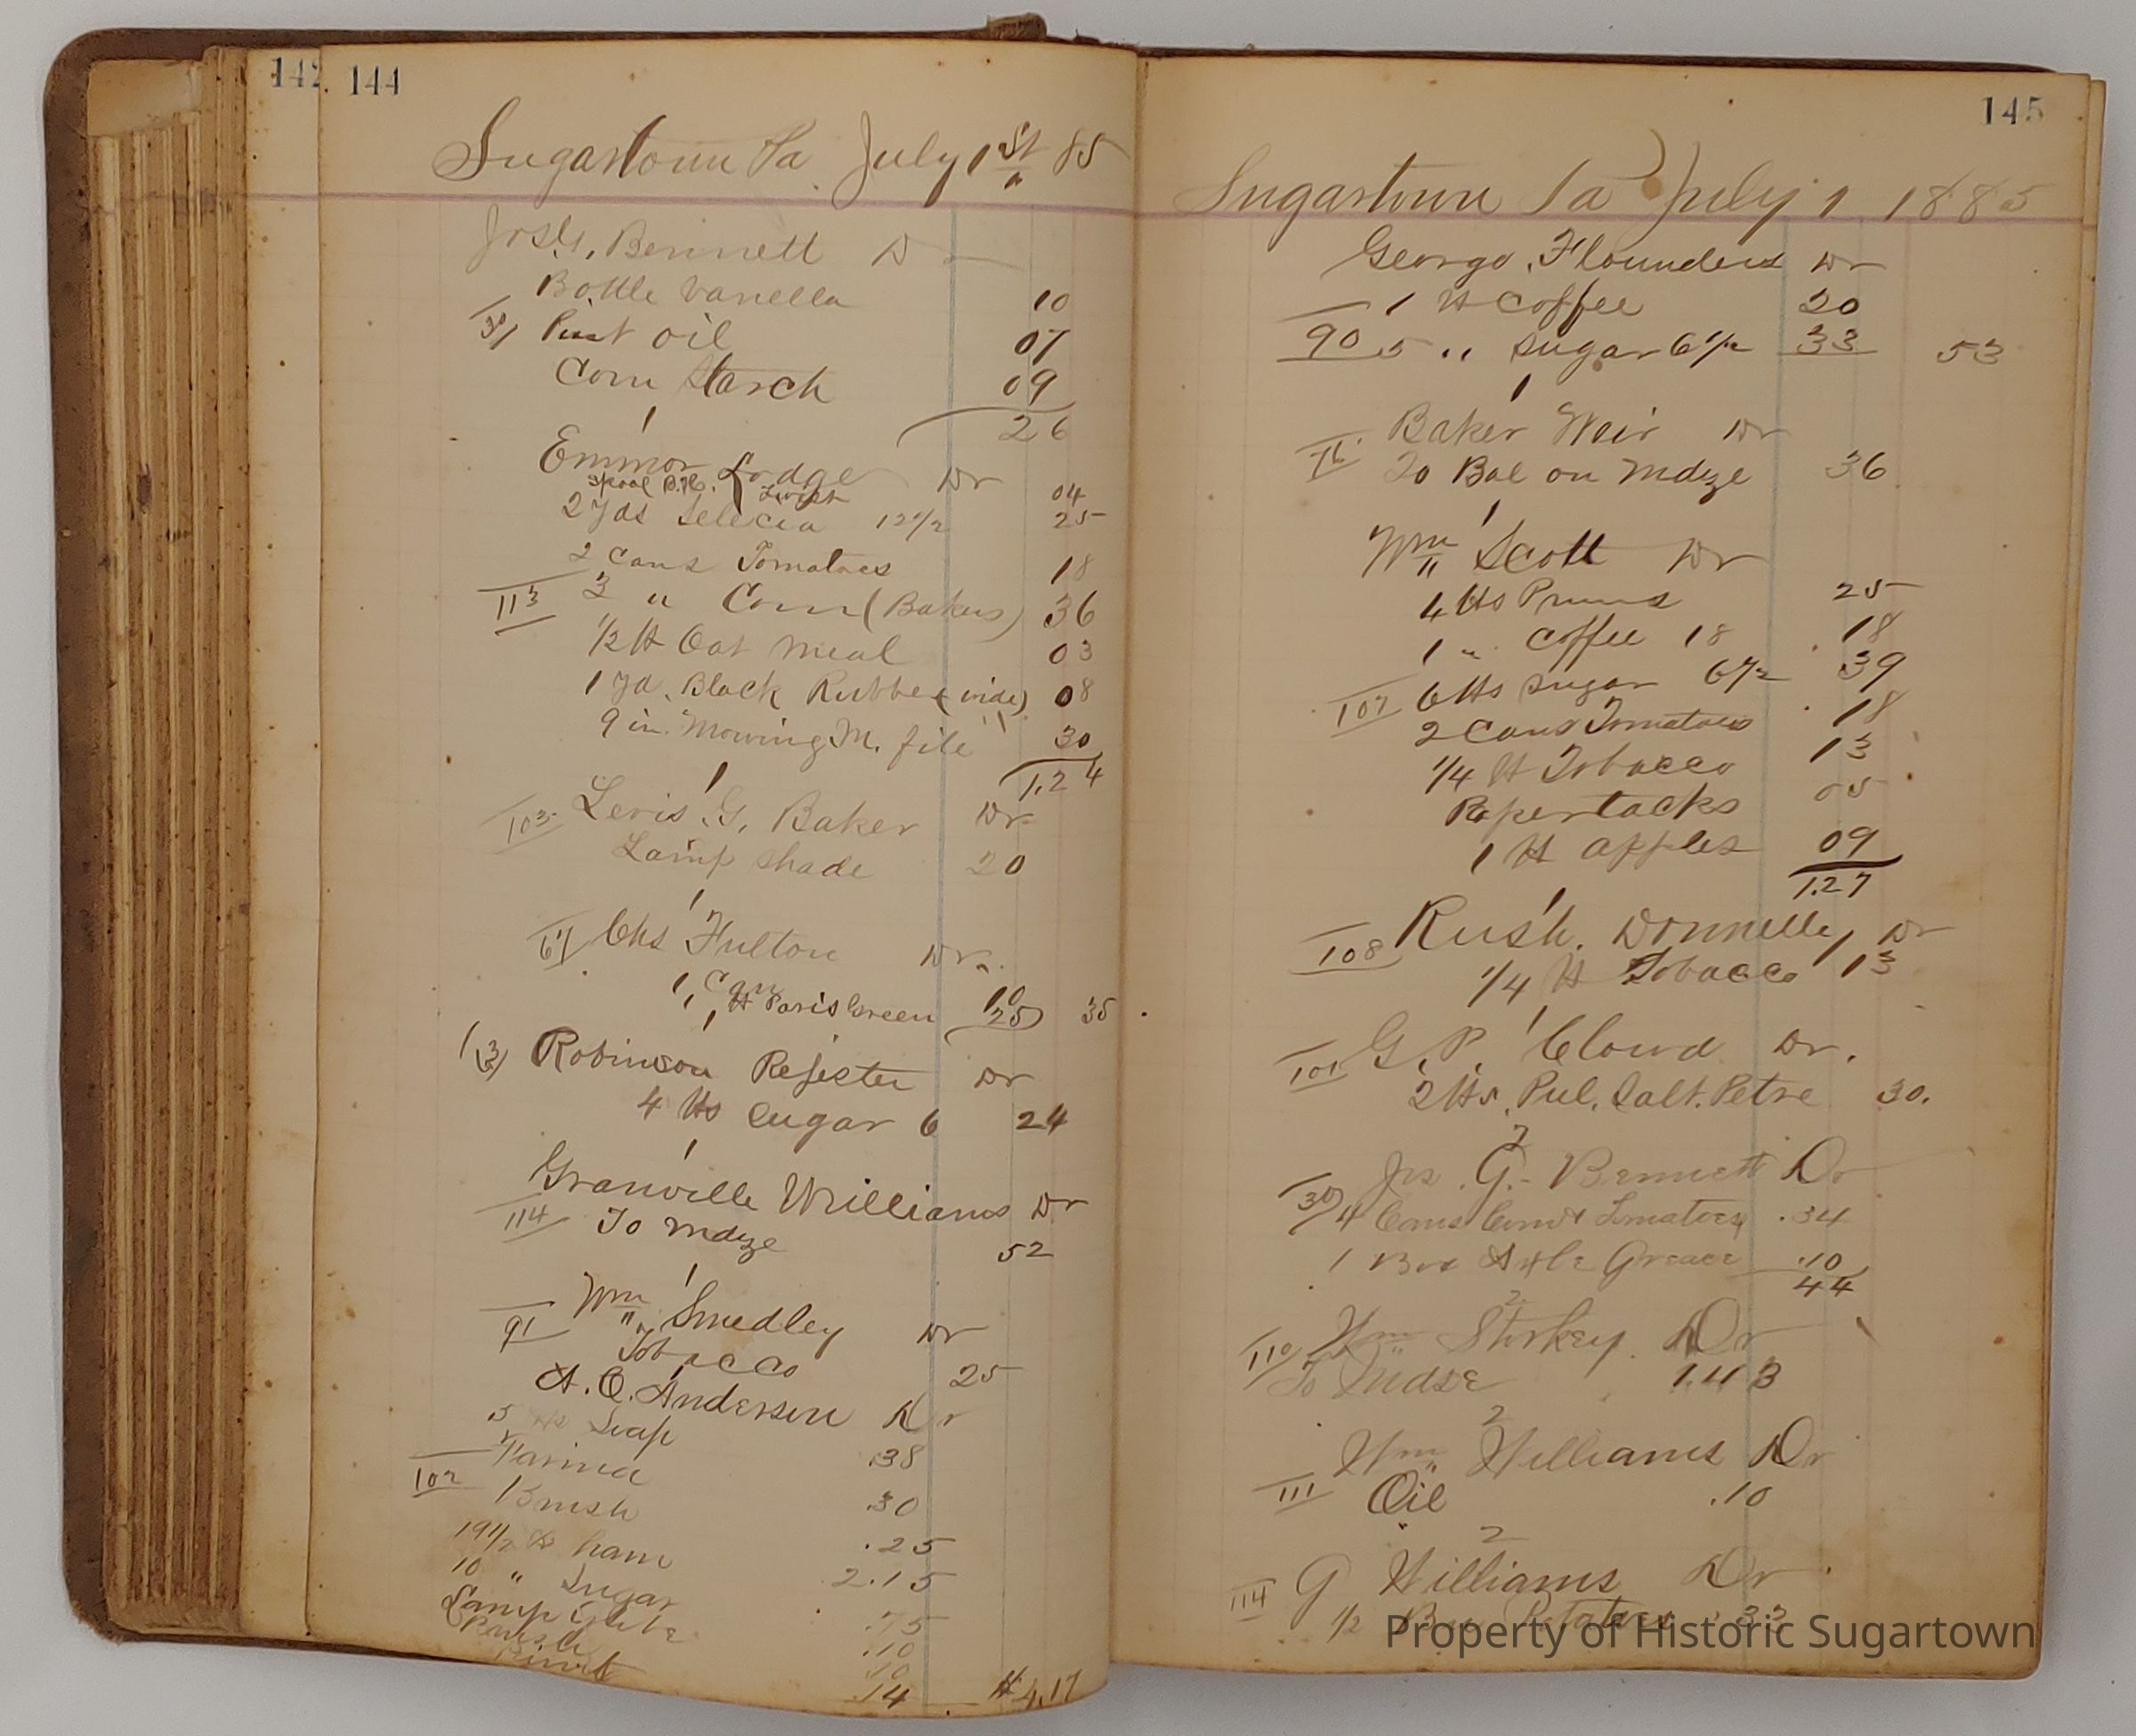 142
144
Sugartown Pa. July 1st 85
Jos. G. Bennett Dr
Bottle Vanella 10
30 Pint oil 07
Corn Starch 09
26
1
Emmor Lodge Dr
Spool B.H. Twist 04
2 yds Selecia 12 1/2 25
2 Cans Tomatoes 18
113 3 " Corn (Bakers) 36
1/2 lb Oat meal 03
1 yd. Black Rubber (wide) 08
9 in. Mowing M. file 30
1.24
1
103 Levis. G. Baker Dr
Lamp shade 20
1
67 Chs Fulton Dr.
1 Can 10
1 lb Paris Green 25 35
1
13 Robinson Regester Dr
4 lbs sugar 6 24
1
Granville Williams Dr
114 To mdze 52
1
91 Wm Smedley Dr
Tobacco 25
A. Q. Anderson Dr
5 lbs Soap .38
102 Farina .30
Brush .25
19 1/2 lb ham 2.15
10 " Sugar .75
Lamp Globe .10
10
14 $4.17
145
Sugartown Pa July 1 1885
George. Flounders Dr
1 lb Coffee 20
90 5 " sugar 6 1/2 33 53
1
Baker Weir Dr
To Bal on mdze 36
1
Wm Scott Dr
4 lbs Pruns 25
1 " coffee 18 18
107 6 lbs sugar 6 1/2 39
2 Cans Tomatoes 18
1/4 lb Tobacco 13
Paper tacks 05
1 lb apples 09
1.27
1
108 Rush. Donnelly Dr
1/4 lb Tobacco 13
1
101 G. P. Cloud Dr.
2 lbs. Pul. Salt. Petre 30.
2
Jos. G. Bennett Dr
30 4 Cans Corn & Tomatoes .34
1 Box Axle Grease .10
44
2
110 Wm Storkey. Dr
To Mdse 1.43
2
Wm Williams Dr
111 Oil .10
2
114 G Williams Dr
1/2 Bu Potatoes 33
Property of Historic Sugartown